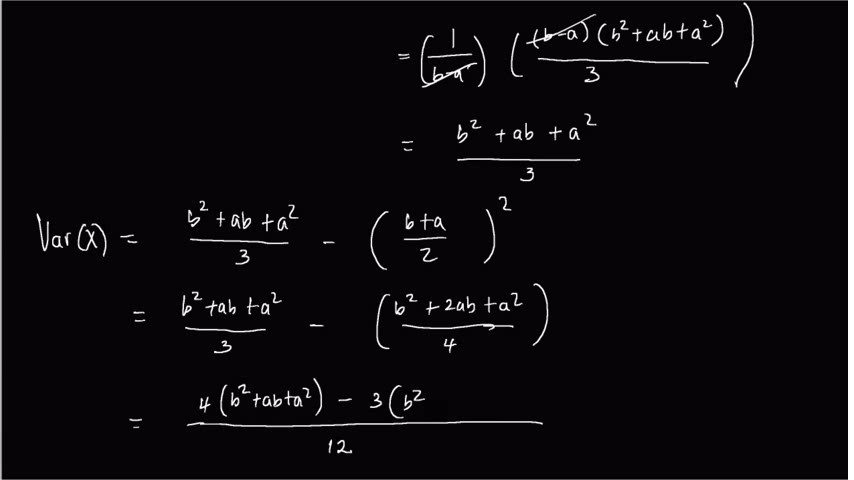 = (1/(b-a)) ((b-a)(b²+ab+a²)/3)
= (b² + ab + a²)/3
Var(X) = (b² + ab + a²)/3 - ((b+a)/2)²
= (b²+ab+a²)/3 - ((b² + 2ab + a²)/4)
= (4(b²+ab+a²) - 3(b²)/12